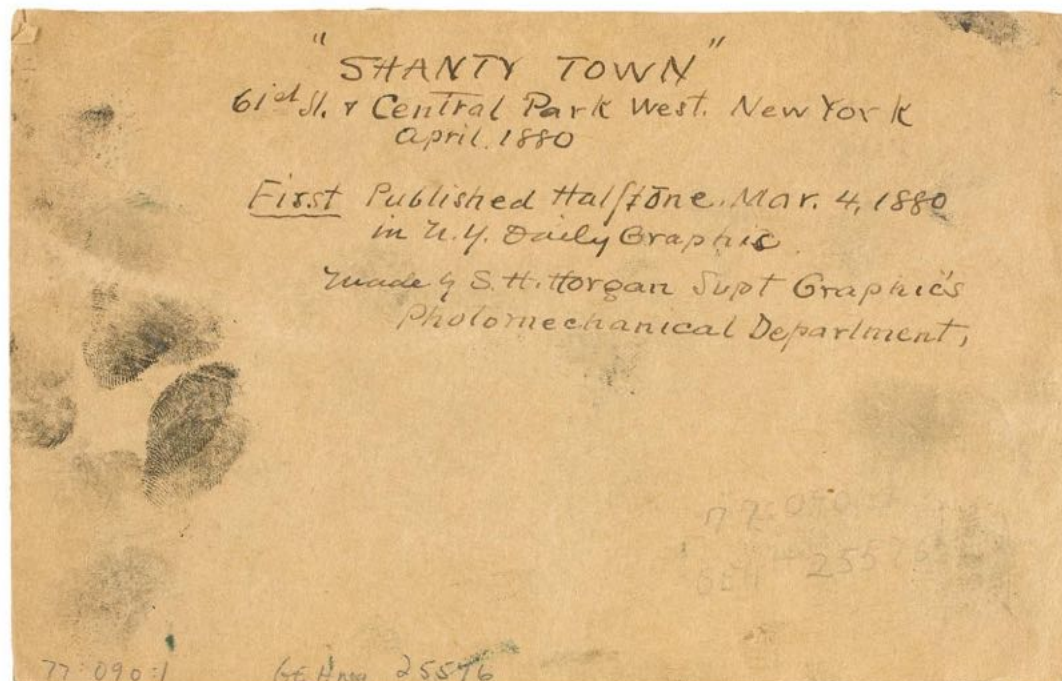 "SHANTY TOWN"
61st St. & Central Park West. New York
April. 1880
First Published Halftone. Mar. 4, 1880
in N.Y. Daily Graphic
Made by S. H. Horgan Supt Graphic's
Photomechanical Department,
77:090
25576
77:090:1 25576